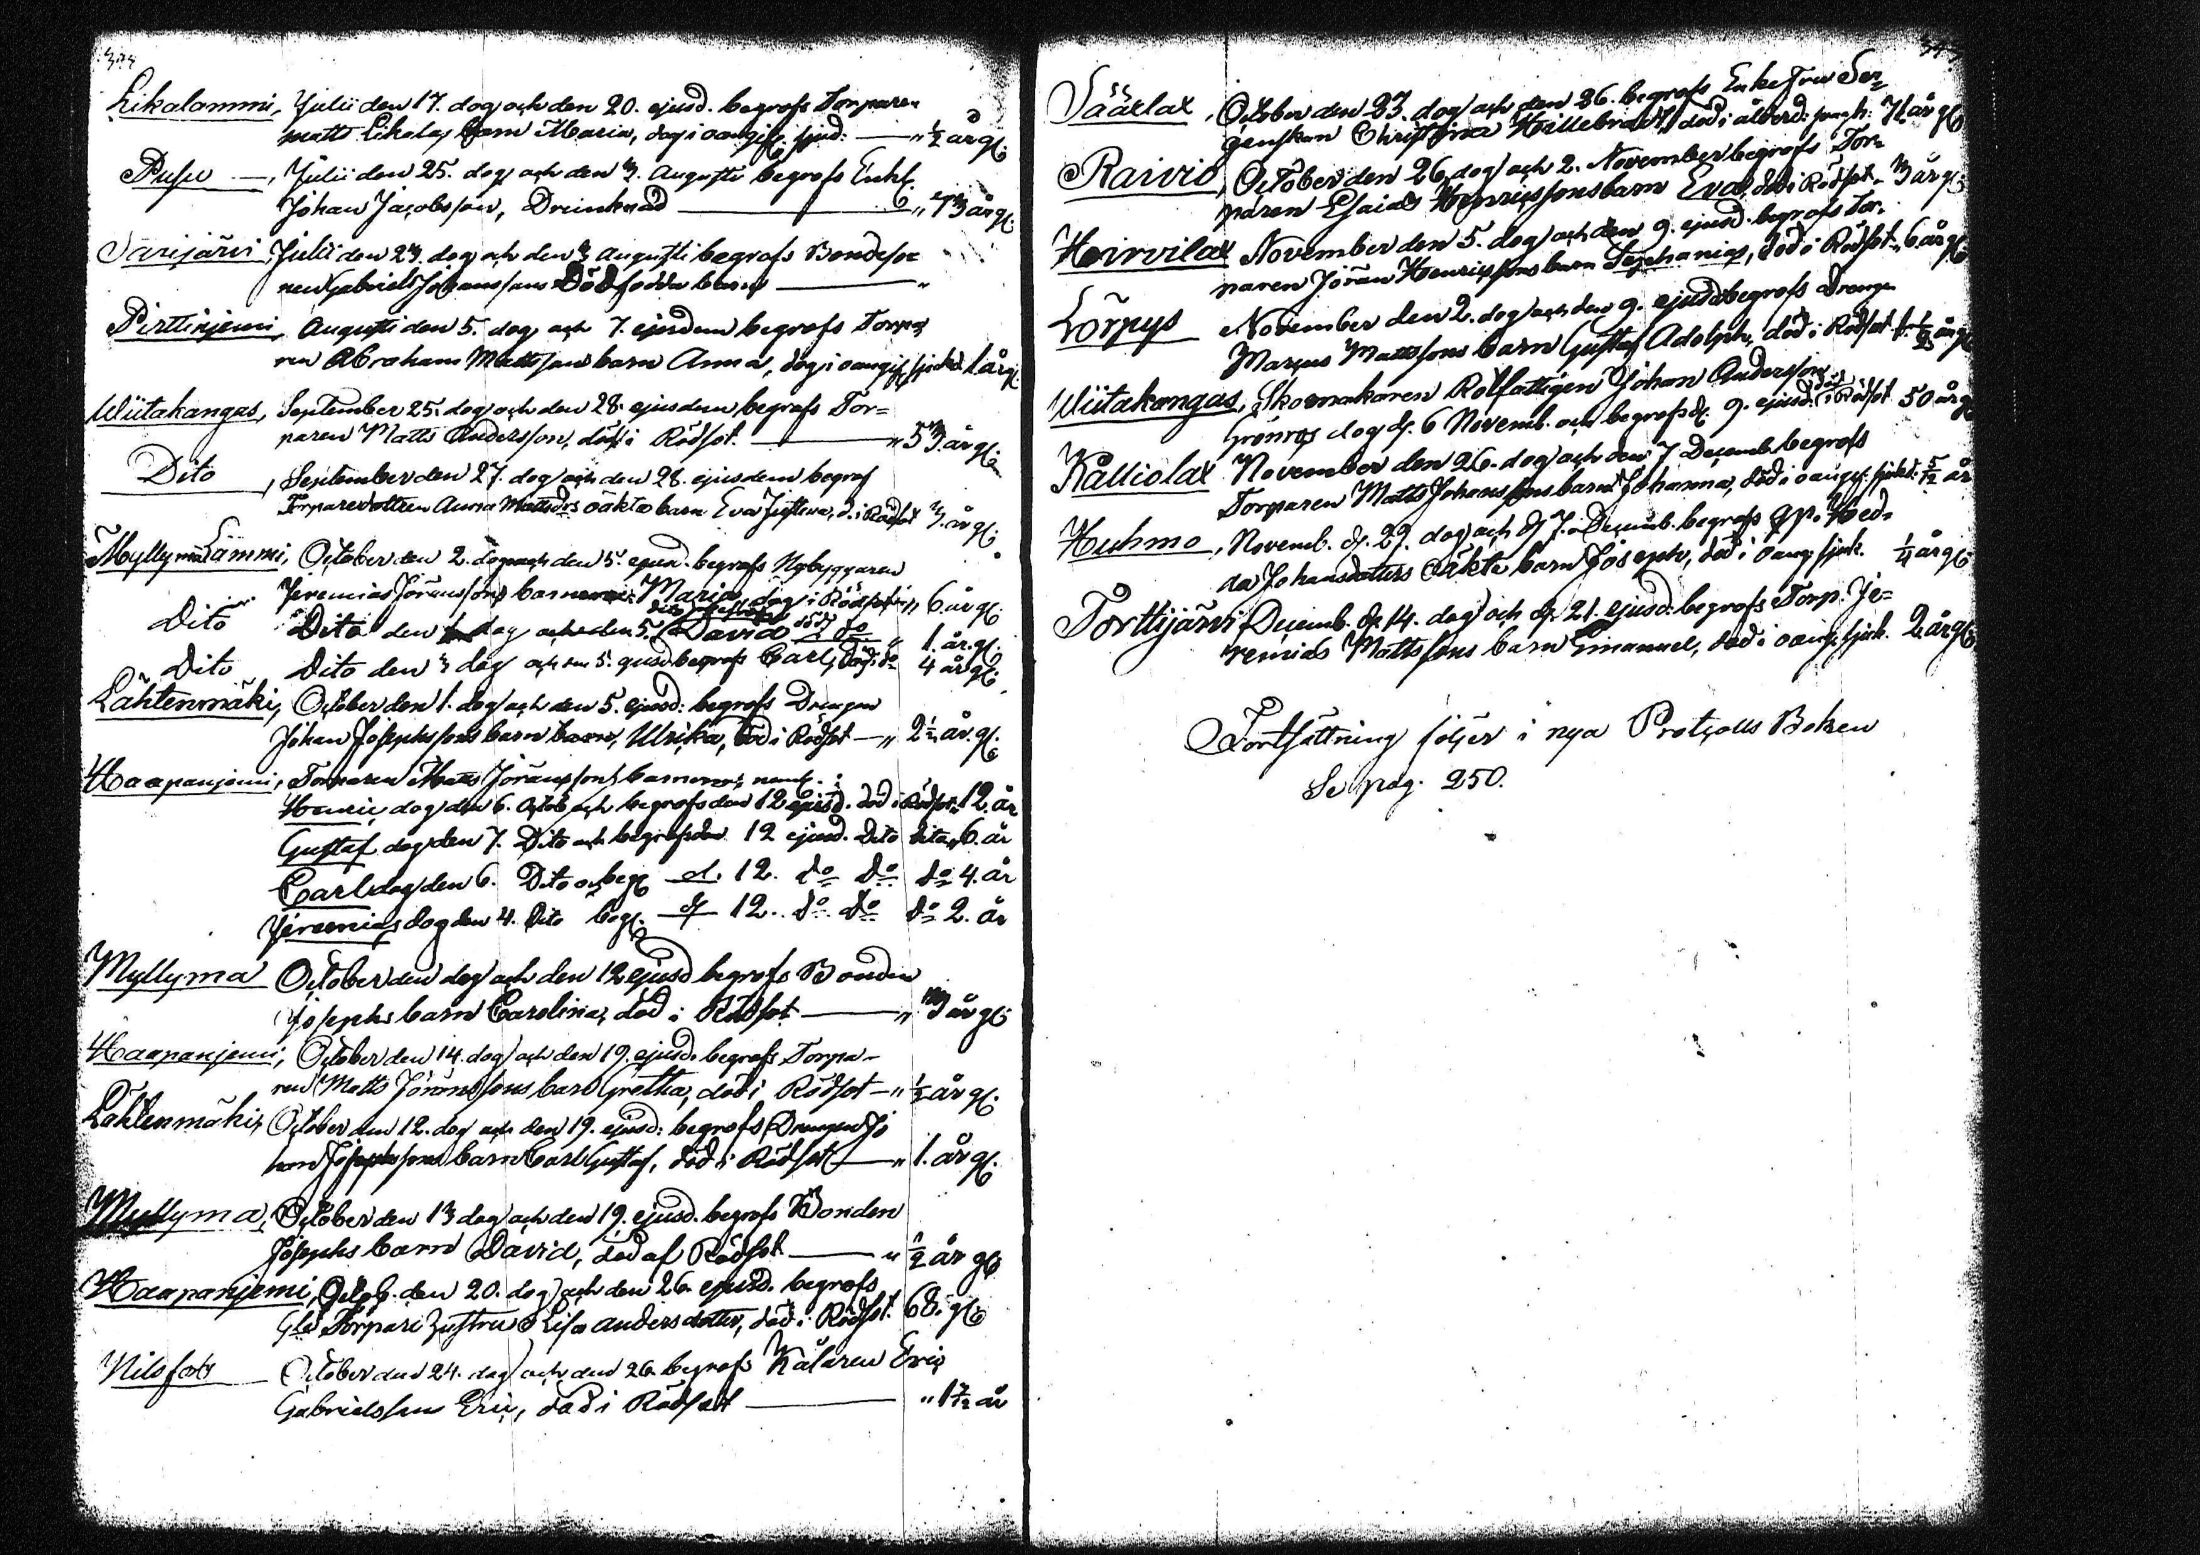 Likalammi, Julii den 17. dog och den 20. ejusd. begrofs Torparen
Matts Likalas barn Maria, dog i oangif. sjud. — " ½ år gl.
Pusu —, Julii den 25. dog och den 3. Augusti begrofs Enkl.
Johan Jacobsson, Drunknad — " 73 år gl.
Sarijärvi Julii den 23. dog och den 3 Augusti begrofs Bondeso-
nen Gabriel Johanssons Dödfödda barn — "
Pirttinjemi, Augusti den 5. dog och 7. ejusdem begrofs Torpa-
ren Abraham Mattssons barn Anna, dog i oangif. sjukd. 1 år gl.
Wiitakangas, September 25. dog och den 28. ejusdem begrofs Tor=
paren Matts Andersson, död i Rödsot. — " 53 år gl.
Dito, September den 27. dog och den 28. ejusdem begrof
Torparedottren Anna Mattsdrs oäkta barn Eva Justina, d. i Rödsot 3. år gl.
Myllymä Lammi, October den 2. dog och den 5. ejusd. begrofs Nybyggaren
Jeremias Göranssons barn Maria, dog i Rödsot " 6 år gl.
Dito Dito den dag och den 5. David 1. år. gl.
Dito Dito den 3 dag och den 5. ejusd. begrofs Carl, död i do 4 år gl.
Lähtenmäki, October den 1. dog och den 5. ejusd: begrofs Drengen
Johan Josephssons barn barn, Ulrika, död i Rödsot — " 2½ år. gl.
Haapanjemi, Torparen Matts Göranssons barn neml. :
Henric dog den 6. Octob och begrofs den 12 ejusd. död i Rödsot 12. år
Gustaf dog den 7. Dito och begrofs den 12 ejusd. Dito Dito 6. år
Carl dog den 6. Dito och begr. d. 12. do do do 4. år
Jeremias dog den 4. Dito begr. d. 12. do do do 2. år
Myllymä October den dog och den 12 ejusd begrofs Bonden
Josephs barn Carolina, död i Rödsot — " 3 år gl.
Haapanjemi, October den 14. dog och den 19. ejusd. begrofs Torpa-
ren Matts Göranssons barn Gretha, död i Rödsot — " ½ år gl.
Lähtenmäki, October den 12. dog och den 19. ejusd: begrofs Drengen Jo
han Josephssons barn Carl Gustaf, död i Rödsot — " 1. år gl.
Myllymä, October den 13 dog och den 19. ejusd. begrofs Bonden
Josephs barn David, död af Rödsot — " ½ år gl.
Haapanjemi, Octob. den 20. dog och den 26 ejusd. begrofs
Gle Torpare hustrun Lisa Andersdotter, död i Rödsot. 68. gl.
Nilsfors October den 24. dog och den 26 begrofs Kålaren Eric
Gabrielssons Eric, död i Rödsot — " 1 år
Säärlax, October den 23. dog och den 26. begrofs Enke Fru Ser-
genskan Christina Hillebrandt, död i ålderd. 71 år gl.
Raivio, October den 26. dog och 2. November begrofs Tor-
paren Esaias Henricssons barn Eva, död i Rödsot " 3 år gl.
Heirvilax November den 5. dog och den 9. ejusd. begrofs Tor-
paren Göran Henricssons barn Sephanias, död i Rödsot " 6 år gl.
Lörpys November den 2. dog och den 9. ejusd. begrofs Drengen
Marcus Mattssons barn Gustaf Adolph, död i Rödsot ½ år gl.
Wiitakangas, Skomakaren Rotfattigen Johan Andersson
Grönros dog d. 6 Novemb. och begrofs d. 9. ejusd. död i Rödsot 50 år gl.
Källiolax November den 26. dog och den 7 Decemb. begrofs
Torparen Matts Johanssons barn Johanna, död i oangif. sjukd. 5/12 år
Huhmo, Novemb. d. 29. dog och d. 7. Decemb. begrofs qp. Hed-
da Johansdotters Oäkta barn Joseph, död i oang sjuk. ¼ år gl.
Torttijärvi Decemb. d. 14. dog och d. 21. ejusd: begrofs Torp. Je=
remias Mattssons barn Emanuel, död i oang. sjuk. 2 år gl.
Fortsättning följer i nya Protcolls Boken
Se pag. 250.